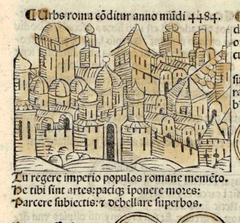 Urbs roma cõditur anno mũdi 4484.
Tu regere imperio populos romane memẽto.
He tibi sint artes: paciq; ĩponere mores:
Parcere subiectis: ⁊ debellare superbos.